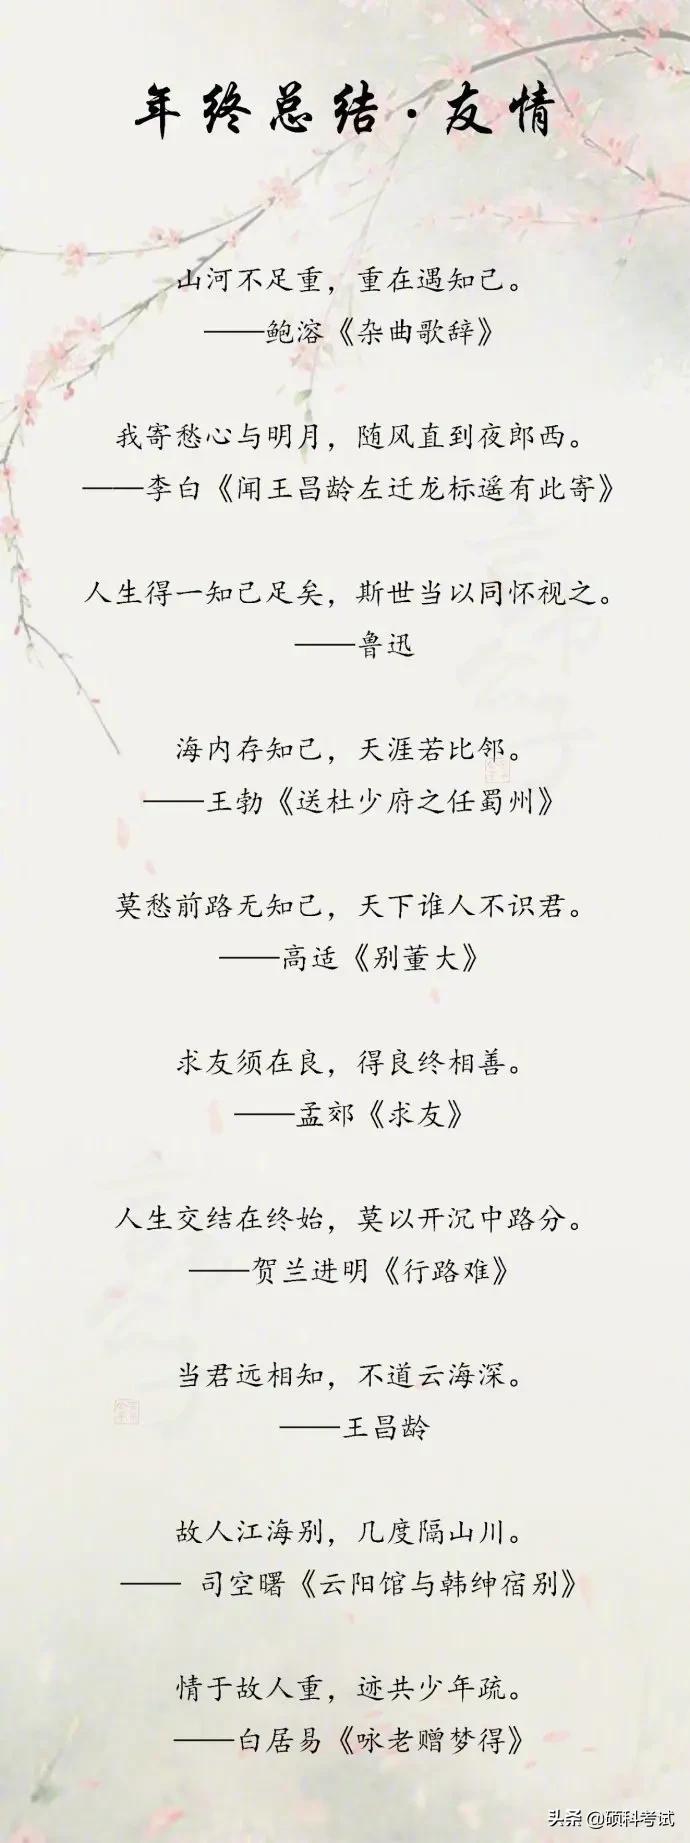 年终总结·友情
山河不足重，重在遇知己。
——鲍溶《杂曲歌辞》
我寄愁心与明月，随风直到夜郎西。
——李白《闻王昌龄左迁龙标遥有此寄》
人生得一知己足矣，斯世当以同怀视之。
——鲁迅
海内存知己，天涯若比邻。
——王勃《送杜少府之任蜀州》
莫愁前路无知己，天下谁人不识君。
——高适《别董大》
求友须在良，得良终相善。
——孟郊《求友》
人生交结在终始，莫以开沉中路分。
——贺兰进明《行路难》
当君远相知，不道云海深。
——王昌龄
故人江海别，几度隔山川。
—— 司空曙《云阳馆与韩绅宿别》
情于故人重，迹共少年疏。
——白居易《咏老赠梦得》
头条 @硕科考试